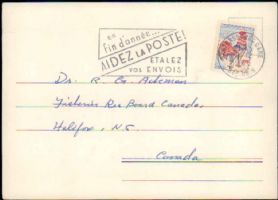 en
fin d'année...
AIDEZ LA POSTE!
ÉTALEZ
vos ENVOIS
Dr. R. G. Ackman
Fisheries Res Board Canada,
Halifax, N.S.
Canada